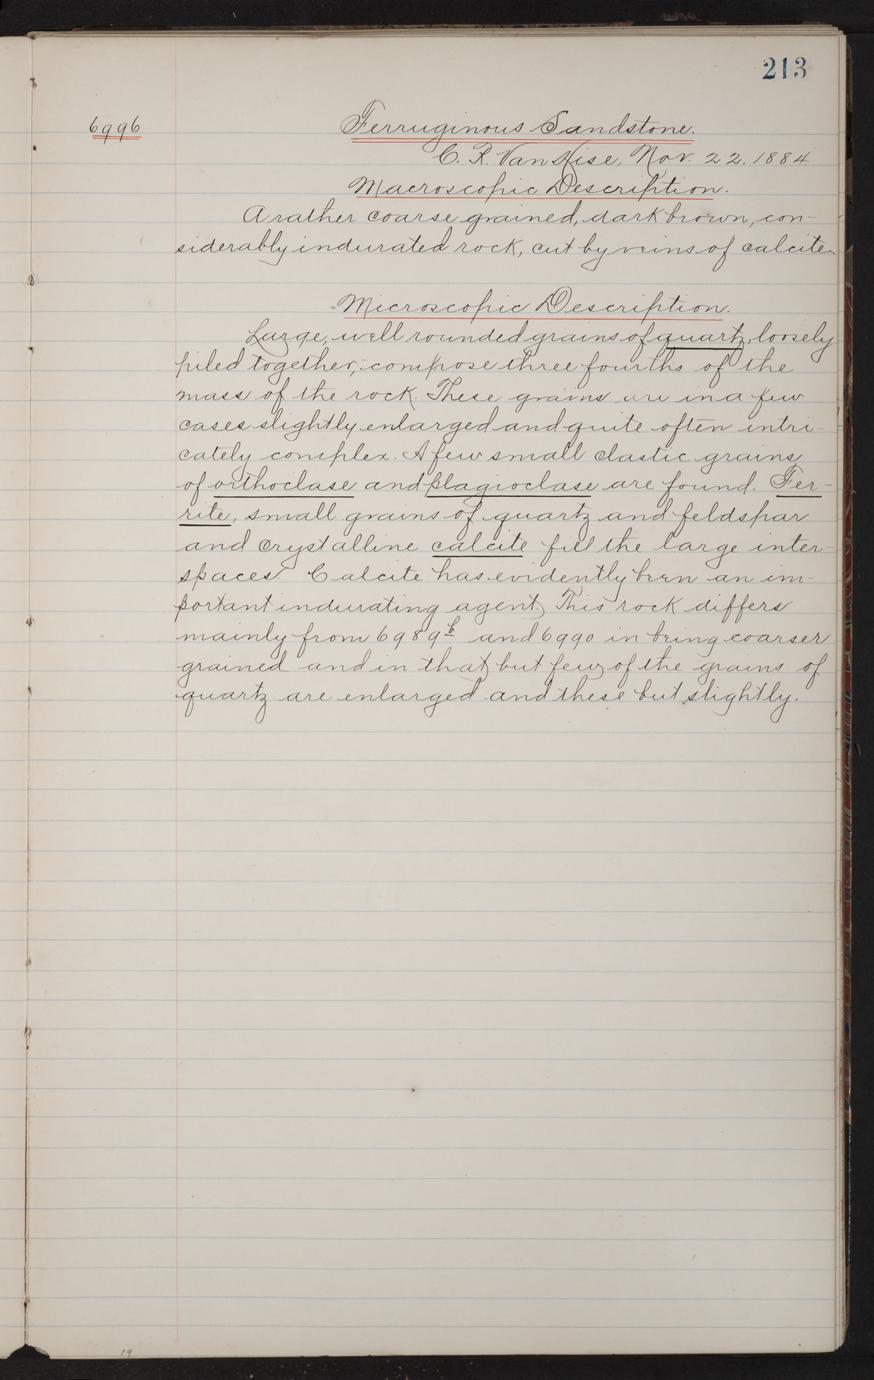 213
6996
Ferruginous Sandstone.
C. R. Van Hise, Nov. 22. 1884
Macroscopic Description.
A rather coarse grained, dark brown, con-
siderably indurated rock, cut by veins of calcite
Microscopic Description.
Large, well rounded grains of quartz, loosely
piled together, compose three fourths of the
mass of the rock. These grains are in a few
cases slightly enlarged and quite often intri-
cately complex. A few small clastic grains
of orthoclase and plagioclase are found. Fer-
rite, small grains of quartz and feldspar
and crystalline calcite fill the large inter-
spaces Calcite has evidently been an im-
portant indurating agent. This rock differs
mainly from 6989b and 6990 in being coarser
grained and in that but few of the grains of
quartz are enlarged and these but slightly.
19